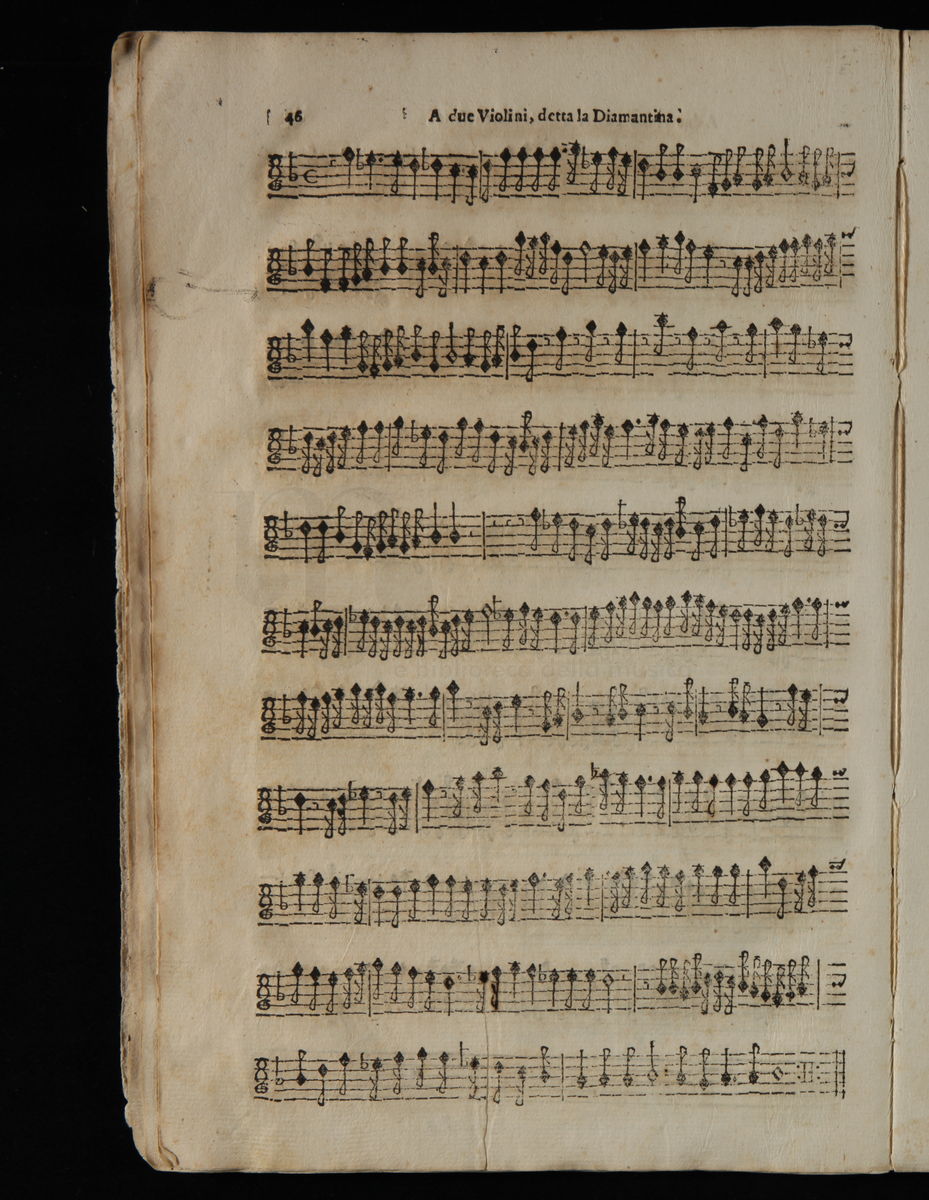 46 A due Violini, detta la Diamantina.